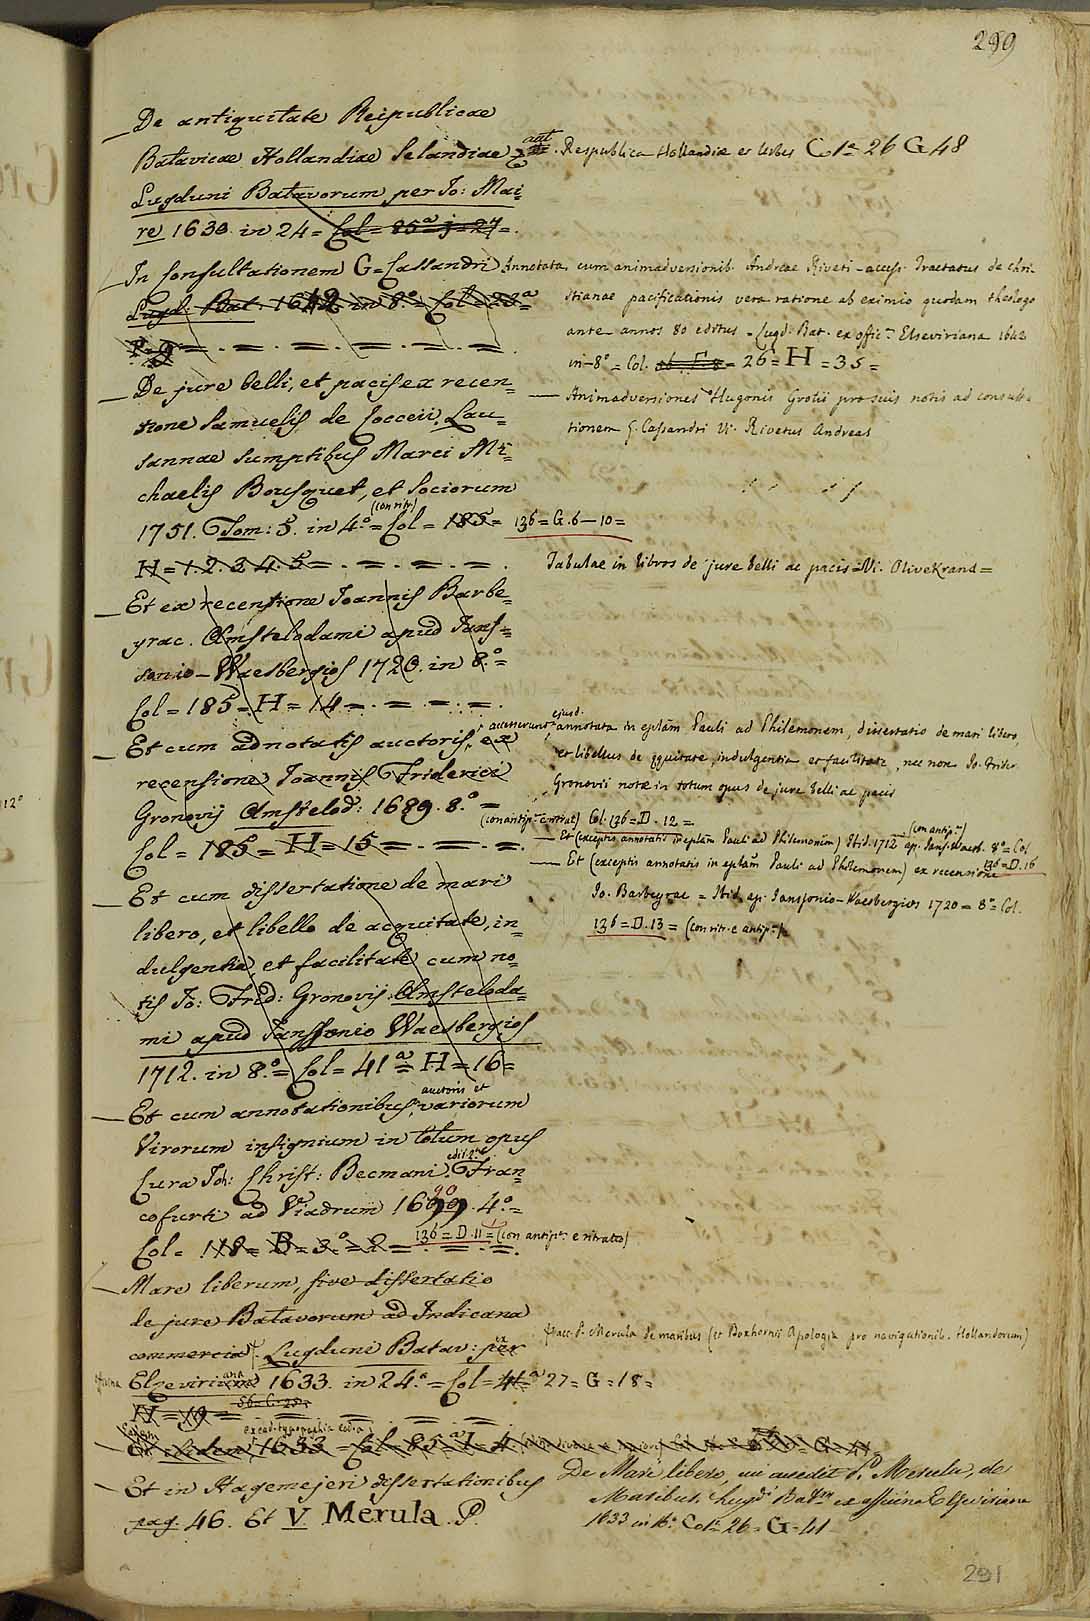 299
— De antiquitate Reipublicae
Batavicae Hollandiae Selandiae &
Lugduni Batavorum per Io: Mai=
re 1630. in 24 = Col = 85ª = j = 27 = .
ant. Respublica Hollandiæ et Urbes Colª 26 G 48
— In Consultationem G = Cassandri Annotata
Lugd: Bat. 1642 in 8.º = Col = 28ª
cum animadversionib. Andreæ Riveti - access. Tractatus de chri-
stianae pacificationis vera ratione ab eximio quodam theologo
ante annos 80 editus - Lugd. Bat. ex offic.ª Elseviriana 1642
in-8º = Col. = 26 = H = 35 =
— De jure belli, et pacis ex recen=
sione Samuelis de Cocceii, Lau=
sannae sumptibus Marci Mi=
chaelis Bousquet, et Sociorum
(con ritr.)
1751. Tom: 5. in 4.º = Col = 185 = 136 = G. 6 — 10 =
H = 1. 2. 3. 4. 5 = . = . = . = .
— Animadversiones Hugonis Grotii pro suis notis ad consulta
tionem G. Cassandri Vi. Rivetus Andreas
Tabulae in libros de jure belli ac pacis = Vi. Olivekrand =
— Et ex recensione Joannis Barbe=
yrac. Amstelodami apud Jans=
sonio - Waesbergios 1720. in 8.º =
Col = 185 = H = 14 = . = . = . = .
— Et cum adnotatis auctoris, ex
recensione Joannis Friderici
Gronovij Amstelod: 1689. 8.º =
Col = 185 = H = 15 = . = . = .
accesserunt ejusd. annotata in eplam Pauli ad Philemonem, dissertatio de mari libero,
et libellus de æquitate, indulgentia et facilitate, nec non Jo. Frider.
Gronovii notæ in totum opus de jure belli ac pacis
(con antip.ª e ritrat.) Col. 136 = D. 12 =
— Et (exceptis annotatis in eplam Pauli ad Philemonem) Ibid. 1712 ap. Jans. Waesb. 8º = Col.
(con antip.ª)
136 = D. 16
— Et (exceptis annotatis in eplam Pauli ad Philemonem) ex recensione
Jo. Barbeyrac = Ibid. ap. Janssonio - Waesbergios 1720 = 8º = Col.
136 = D. 13 = (con ritr. e antip.ª)
12º
— Et cum dissertatione de mari
libero, et libello de aequitate, in=
dulgentia, et facilitate cum no=
tis Jo: Frid: Gronovij. Amsteloda=
mi apud Janssonio Waesbergios
1712. in 8.º = Col = 41ª = H = 16 =
— Et cum annotationibus auctoris et variorum
Virorum insignium in totum opus
Cura Joh: Christ: Becmani. Fran=
cofurti ad Viadrum 1699. 4.º =
Col = 118 = B = 3.º = 2 = 136 = D. 11 = (con antip.ª e ritratto)
— Mare liberum, sive dissertatio
de jure Batavorum ad Indicana
commercia. Lugduni Batav: per
acc. P. Merula de maribus (et Boxhornii Apologia pro navigationib. Hollandorum)
Elzeviriana 1633. in 24.º = Col = 41ª 27 = G = 18 =
H = 19 =
— Et ibidem 1633 = Col = 85ª = I = 4.
— Et in Hagemejeri dissertationibus
pag. 46. Et V. Merula. P.
De Mari libero, cui accedit P. Merula, de
Maribus. Lugdi Batm ex officina Elseviriana
1633 in 16.º Colª 26 = G = 41
291